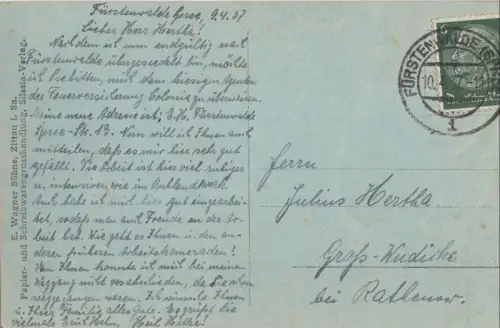 Fürstenwalde Spree, 9.4.37
Lieber Herr Hertha!
Nachdem ich nun endgültig nach
Fürstenwalde übergesiedelt bin, möchte
ich Sie bitten, mich dem hiesigen Agenten
der Feuerversicherung Colonia zu überweisen.
Meine neue Adresse ist: E. H. Fürstenwalde
Spree- Nun will ich Ihnen auch
mitteilen, daß es mir hier sehr gut
gefällt. Die Arbeit ist hier viel ruhiger
u. intensiver, wie im
Auch habe ich mich hier gut eingearbei-
tet, sodass man auch Freude an der Ar-
beit hat. Wie geht es Ihnen u. den an-
deren früheren Arbeitskameraden?
Von Ihnen konnte ich mich bei meinem
Weggang nicht verabschieden, da Sie schon
weggegangen waren. Ich wünsche Ihnen
u. Ihrer Familie alles Gute. Es grüßt Sie
vielmals Heil Hitler!
E. Wagner Söhne, Zittau i. Sa.
Papier- und Schreibwarengrosshandlung. Silesia-Verlag.
FÜRSTENWALDE (SPREE)
10.
1
Herrn
Julius Hertha
Groß-Wudicke
bei Rathenow.